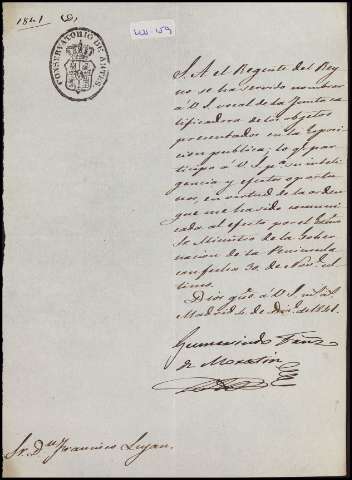 1841
CONSERVATORIO DE ARTES
S. A. el Regente del Rey
no se ha servido nombrar
á V. S. vocal de la Junta ca
lificadora de los objetos
presentados en la Esposi
cion publica; lo q.e par
ticipo á V. S. p.a su inteli
gencia y efectos oportu
nos, en virtud de la orden
que me ha sido comuni
cada al efecto por el Exmo
Sr. Ministro de la Gober
nacion de la Peninsula
con fecha 30 de Nov.e ul
timo.
Dios gue á V. S. m.s a.s
Madrid 4 de Dic.e de 1841.
Gumersindo Fern.z
de Moratin
Sr. D.n Francisco Lujan.